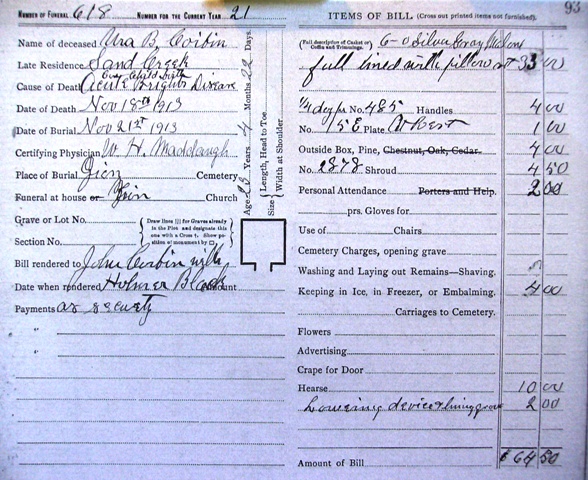 NUMBER OF FUNERAL 618 NUMBER FOR THE CURRENT YEAR 21
Name of deceased Ura B. Corbin
Late Residence Sand Creek
Over Child birth
Cause of Death Acute Brights Disease
Date of Death Nov 18th 1913
Date of Burial Nov 21st 1913
Certifying Physician W. H. Maddaugh
Place of Burial Zion Cemetery
Funeral at house or Zion Church
Grave or Lot No.
Section No.
Draw lines for Graves already in the Plot and designate this one with a Cross †. Show position of monument by □.
Bill rendered to John Corbin with
Date when rendered Holmer Black Amount
Payments as security
"
"
Age 23 Years 4 Months 22 Days.
Size Length, Head to Toe
Width at Shoulder
93
ITEMS OF BILL (Cross out printed items not furnished).
(Full description of Casket or Coffin and Trimmings.) 6-0 Silver Gray
full lined with pillow 33 00
No. 485 Handles 4 00
No. 15 E Plate At Rest 1 00
Outside Box, Pine, Chestnut, Oak, Cedar. 4 00
No. 2878 Shroud 4 50
Personal Attendance Porters and Help. 2 00
prs. Gloves for
Use of Chairs
Cemetery Charges, opening grave
Washing and Laying out Remains—Shaving.
Keeping in Ice, in Freezer, or Embalming. 4 00
Carriages to Cemetery.
Flowers
Advertising
Crape for Door
Hearse 10 00
Lowering device & lining grave 2 00
Amount of Bill $ 64 50